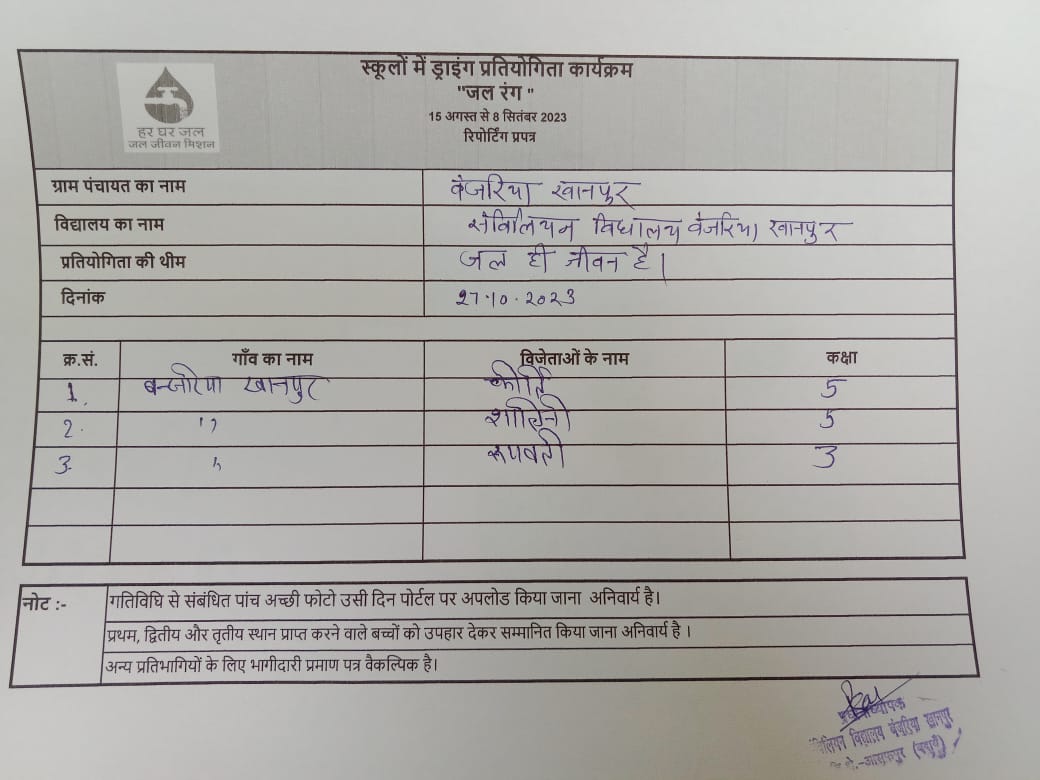 स्कूलों में ड्राइंग प्रतियोगिता कार्यक्रम
"जल रंग "
15 अगस्त से 8 सितंबर 2023
रिपोर्टिंग प्रपत्र
हर घर जल
जल जीवन मिशन
ग्राम पंचायत का नाम वेजरिया खानपुर
विद्यालय का नाम संविलियन विद्यालय वेजरिया खानपुर
प्रतियोगिता की थीम जल ही जीवन है।
दिनांक 27.10.2023
क्र.सं. गाँव का नाम विजेताओं के नाम कक्षा
1. बन्जरिया खानपुर कीर्ति 5
2. " 5
3. " रूपवती 3
नोट :- गतिविधि से संबंधित पांच अच्छी फोटो उसी दिन पोर्टल पर अपलोड किया जाना अनिवार्य है।
प्रथम, द्वितीय और तृतीय स्थान प्राप्त करने वाले बच्चों को उपहार देकर सम्मानित किया जाना अनिवार्य है ।
अन्य प्रतिभागियों के लिए भागीदारी प्रमाण पत्र वैकल्पिक है।
प्रधानाध्यापक
विद्यालय बंजरिया खानपुर
आसफपुर (बदायूँ)